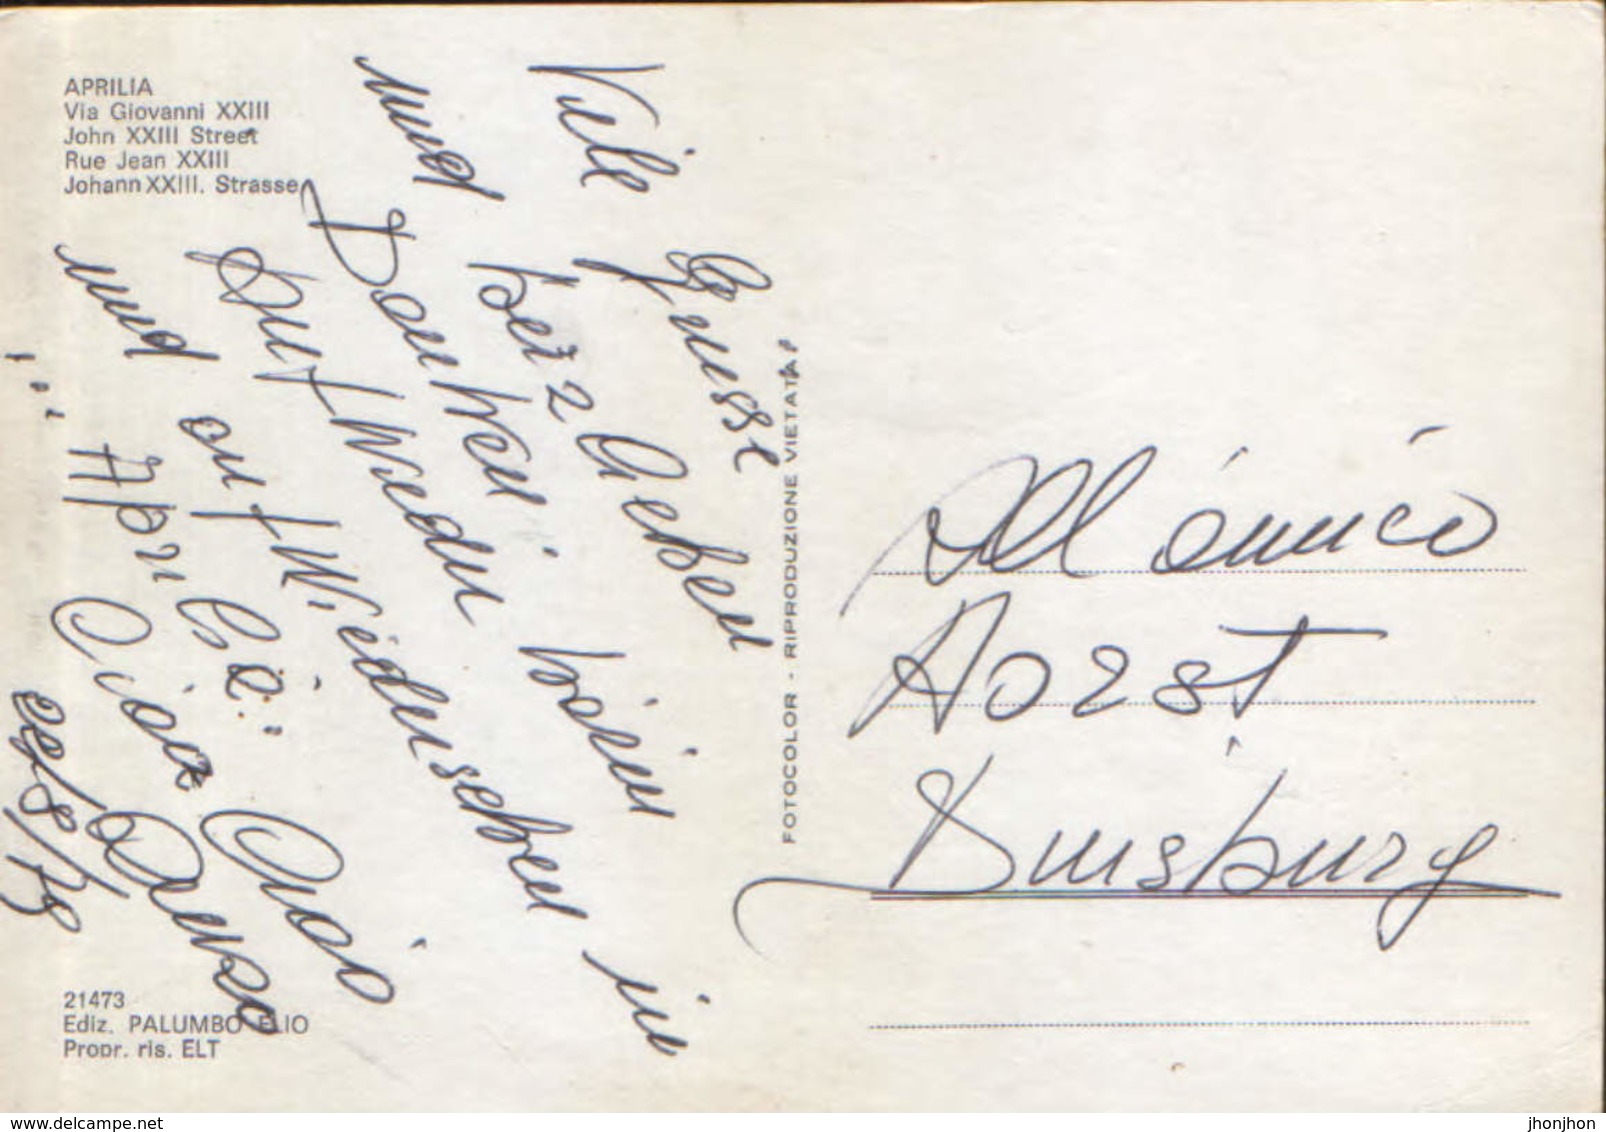 APRILIA
Via Giovanni XXIII
John XXIII Street
Rue Jean XXIII
Johann XXIII. Strasse
Viele Grüsse
und herz
Danken
Auf Wieder
und auf Wiedersehen in
"Aprilia"
Ciao Ciao
21473
Ediz. PALUMBO ELIO
Propr. ris. ELT
FOTOCOLOR - RIPRODUZIONE VIETATA
All'amico
Horst
Duisburg
www.delcampe.net
jhonjhon